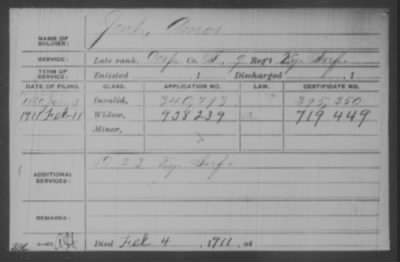 NAME OF SOLDIER: Amos
SERVICE: Late rank, Corp Co. 9 Reg't Ky. Inf.
TERM OF SERVICE: Enlisted , 1 Discharged , 1
DATE OF FILING. CLASS. APPLICATION NO. LAW. CERTIFICATE NO.
Invalid, 340,793 395,350
1911 Feb 11 Widow, 938239 719449
Minor,
ADDITIONAL SERVICES: D 23 Ky. Inf.
REMARKS:
Died Feb 4 , 1911, at